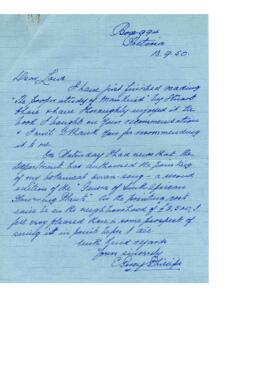 Box 994
Pretoria
18.9.50.
Dear Laura
I have just finished reading
"The proper study of Mankind" by Stuart
Chase & have thoroughly enjoyed it. The
book I bought on your recommendation
& I must thank you for recommending
it to me.
On Saturday I had news that the
department has authorised the printing
of my botanical swan-song — a second
edition of the "Genera of South African
Flowering Plants". As the printing cost
is in the neighbourhood of £2,500, I
feel very pleased there is some prospect of
seeing it in print before I die.
With kind regards
Yours sincerely
E Percy Phillips